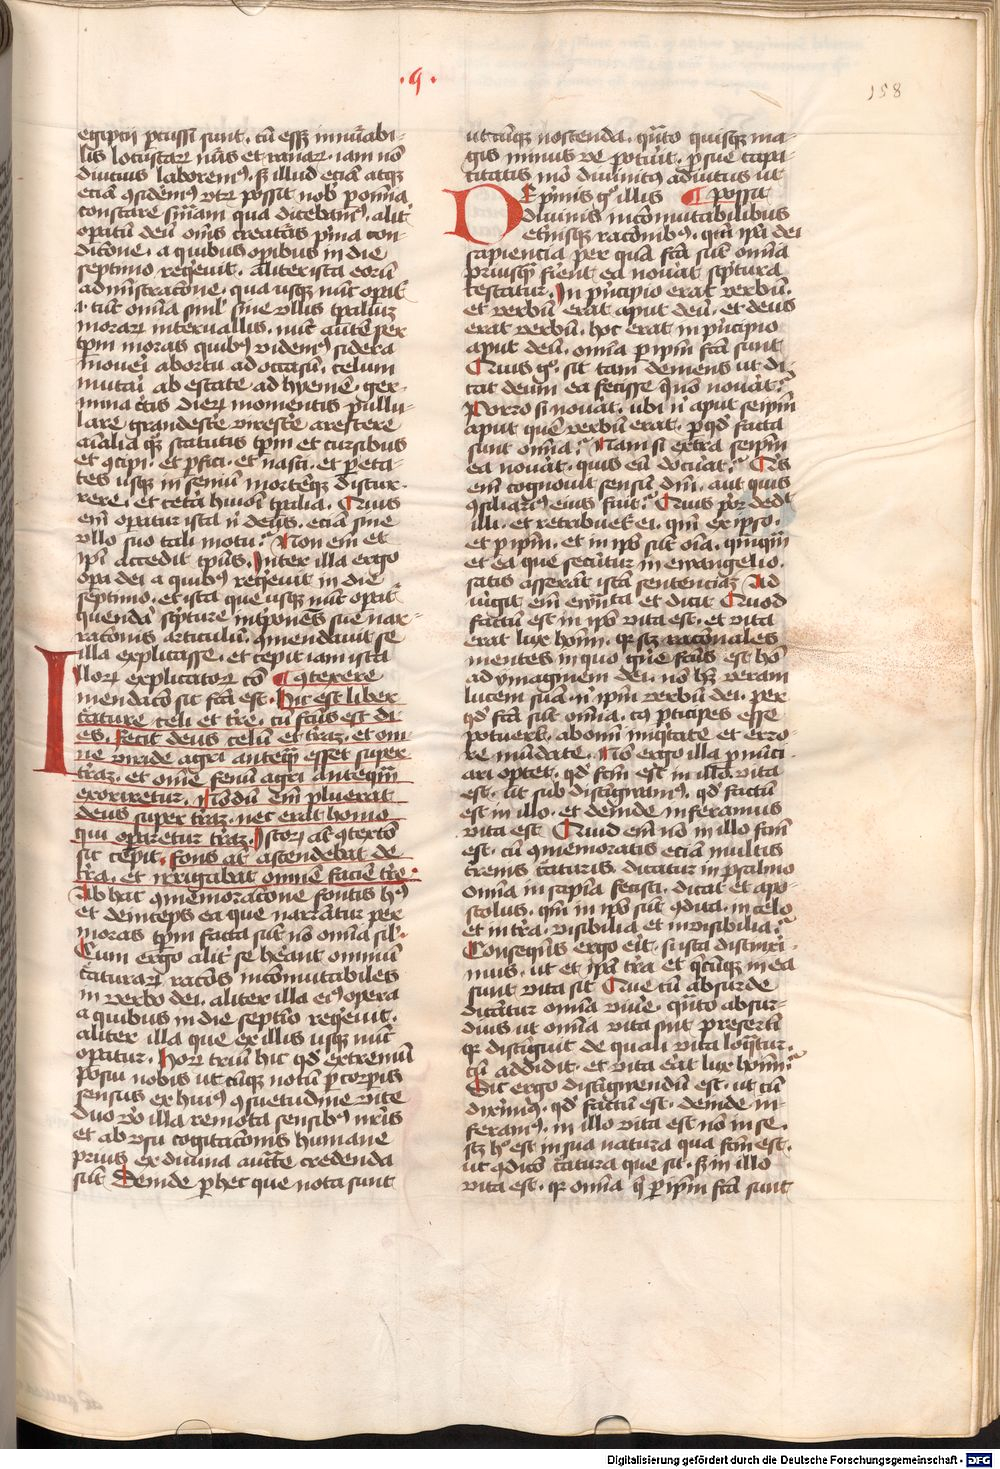 ·5·
158
egiptij percussi sunt. cum essz innumerabi-
lis locustarum numerus et ranarum. iam non
diutius laboremus. sz illud etiam atqz
etiam considerem utrum possit nobis per omnia
constare sententiam qua dicebamus. aliter
operatum deum omnes creaturas prima con-
ditione. a quibus operibus in die
septimo requieuit. aliter ista eorum
administratione. qua usqz nunc operatur
tunc omnia simul sine ullis temporalium
morarum interuallis. nunc autem per
temporum moras quibus videmus sidera
moueri ab ortu ad occasum. celum
mutari ab estate ad hyemem. ger-
mina certis dierum momentis pullu-
lare grandescere virescere arescere
animalia quoqz statutis temporum et cursibus
et concipi. et perfici. et nasci. et per eta-
tes usqz in senium mortemqz discur-
rere. et cetera huiusmodi temporalia. Quis
enim operatur ista nisi deus. etiam sine
ullo suo tali motu? Non enim et
ipsi accedit tempus. Inter illa ergo
opera dei a quibus requieuit in die
septimo. et ista que usqz nunc operatur
quendam scripture interponens sue nar-
rationis articulum. commendauit se
illa explicasse. et cepit iam ista
Illorum explicatorum com¶ contexere
mendatio sic facta est. Hic est liber
creature celi et terre. cum factus est di-
es. fecit deus celum et terraz. et om-
ne viride agri antequam esset super
terraz. et omne fenum agri antequam
exoriretur. Nondum enim pluerat
deus super terraz. nec erat homo
qui operaretur terraz. Istorum autem contextio
sic cepit. fons autem ascendebat de
terra. et irrigabat omnem faciem terre.
Ab hac commemoratione fontis huius
et deinceps ea que narrantur per
moras temporum facta sunt non omnia simul.
Cum ergo aliter se habeant omnium
creaturarum rationes incommutabiles
in verbo dei. aliter illa eius opera
a quibus in die septimo requieuit.
aliter illa que ex illis usqz nunc
operatur. horum trium hic quod extremum
posui nobis utcumqz notum per corporis
sensus ex huius consuetudine vite
duo vero illa remota sensibus nostris
et ab usu cogitationis humane
prius ex diuina auctoritate credenda
sunt Deinde per hec que nota sunt
utcumqz noscenda. quanto quisqz ma-
gis minus ve potuerit. pro sue capa-
citatis modo diuinitus adiutus ut
De primis ergo illis ¶ possit
diuinis incommutabilibus
eternisqz rationibus. quoniam ipsa dei
sapiencia per quam facta sunt omnia
priusquam fierent ea nouerat scriptura
testatur. In principio erat verbum.
et verbum erat aput deum. et deus
erat verbum. hoc erat in principio
aput deum. omnia per ipsum facta sunt
Quis ergo. sit tam demens ut di-
cat deum ea fecisse que non nouerat?
Porro si nouerat. ubi nisi aput seipsum
aput quem verbum erat. per quod facta
sunt omnia? Nam si extra seipsum
ea nouerat. quis eum docuerat? Quis
enim cognouit sensum domini. aut quis
consiliarius eius fuit? Quis prior dedit
illi. et retribuetur ei. quoniam ex ipso.
et per ipsum. et in ipso sunt omnia. quamquam
et ea que secuntur in ewangelio.
satis asserant istam sentenciaz Ad
iungit enim ewangelista et dicit Quod
factum est in ipso vita est. et vita
erat lux hominum. quia scilicet rationales
mentes in quo genere factus est homo
ad ymaginem dei. non habent veram
lucem suam nisi ipsum verbum dei. per
quod facta sunt omnia. cuius participes esse
potuerunt. ab omni iniquitate et erro-
re mundate. Non ergo illa pronunci-
ari oportet. quod factum est in illo. vita
est. ut sub distinguamus. quod factum
est in illo. et deinde inferamus
vita est Quid enim non in illo factum
est. cum commemoratis etiam multis
terrenis creaturis. dicatur in psalmo
omnia in sapientia fecisti. dicat et apo-
stolus. quoniam in ipso sunt condita. in celo
et in terra. visibilia et inuisibilia?
Consequens ergo erit. si ista distinxeri-
mus. ut et ipsa terra et quecumqz in ea
sunt vita sit Que cum absurde
dicantur omnia viuere. quanto absur-
dius ut omnia vita sint presertim
quia distinguit de quali vita loquatur.
cum addidit. et vita erat lux hominum?
Sic ergo distinguendum est. ut cum
dixerimus. quod factum est. deinde in-
feramus. in illo vita est non in se.
scilicet hoc est in sua natura qua factum est.
ut condicio creatura que sit. sz in illo
vita est. quia omnia que per ipsum facta sunt
Digitalisierung gefördert durch die Deutsche Forschungsgemeinschaft - DFG